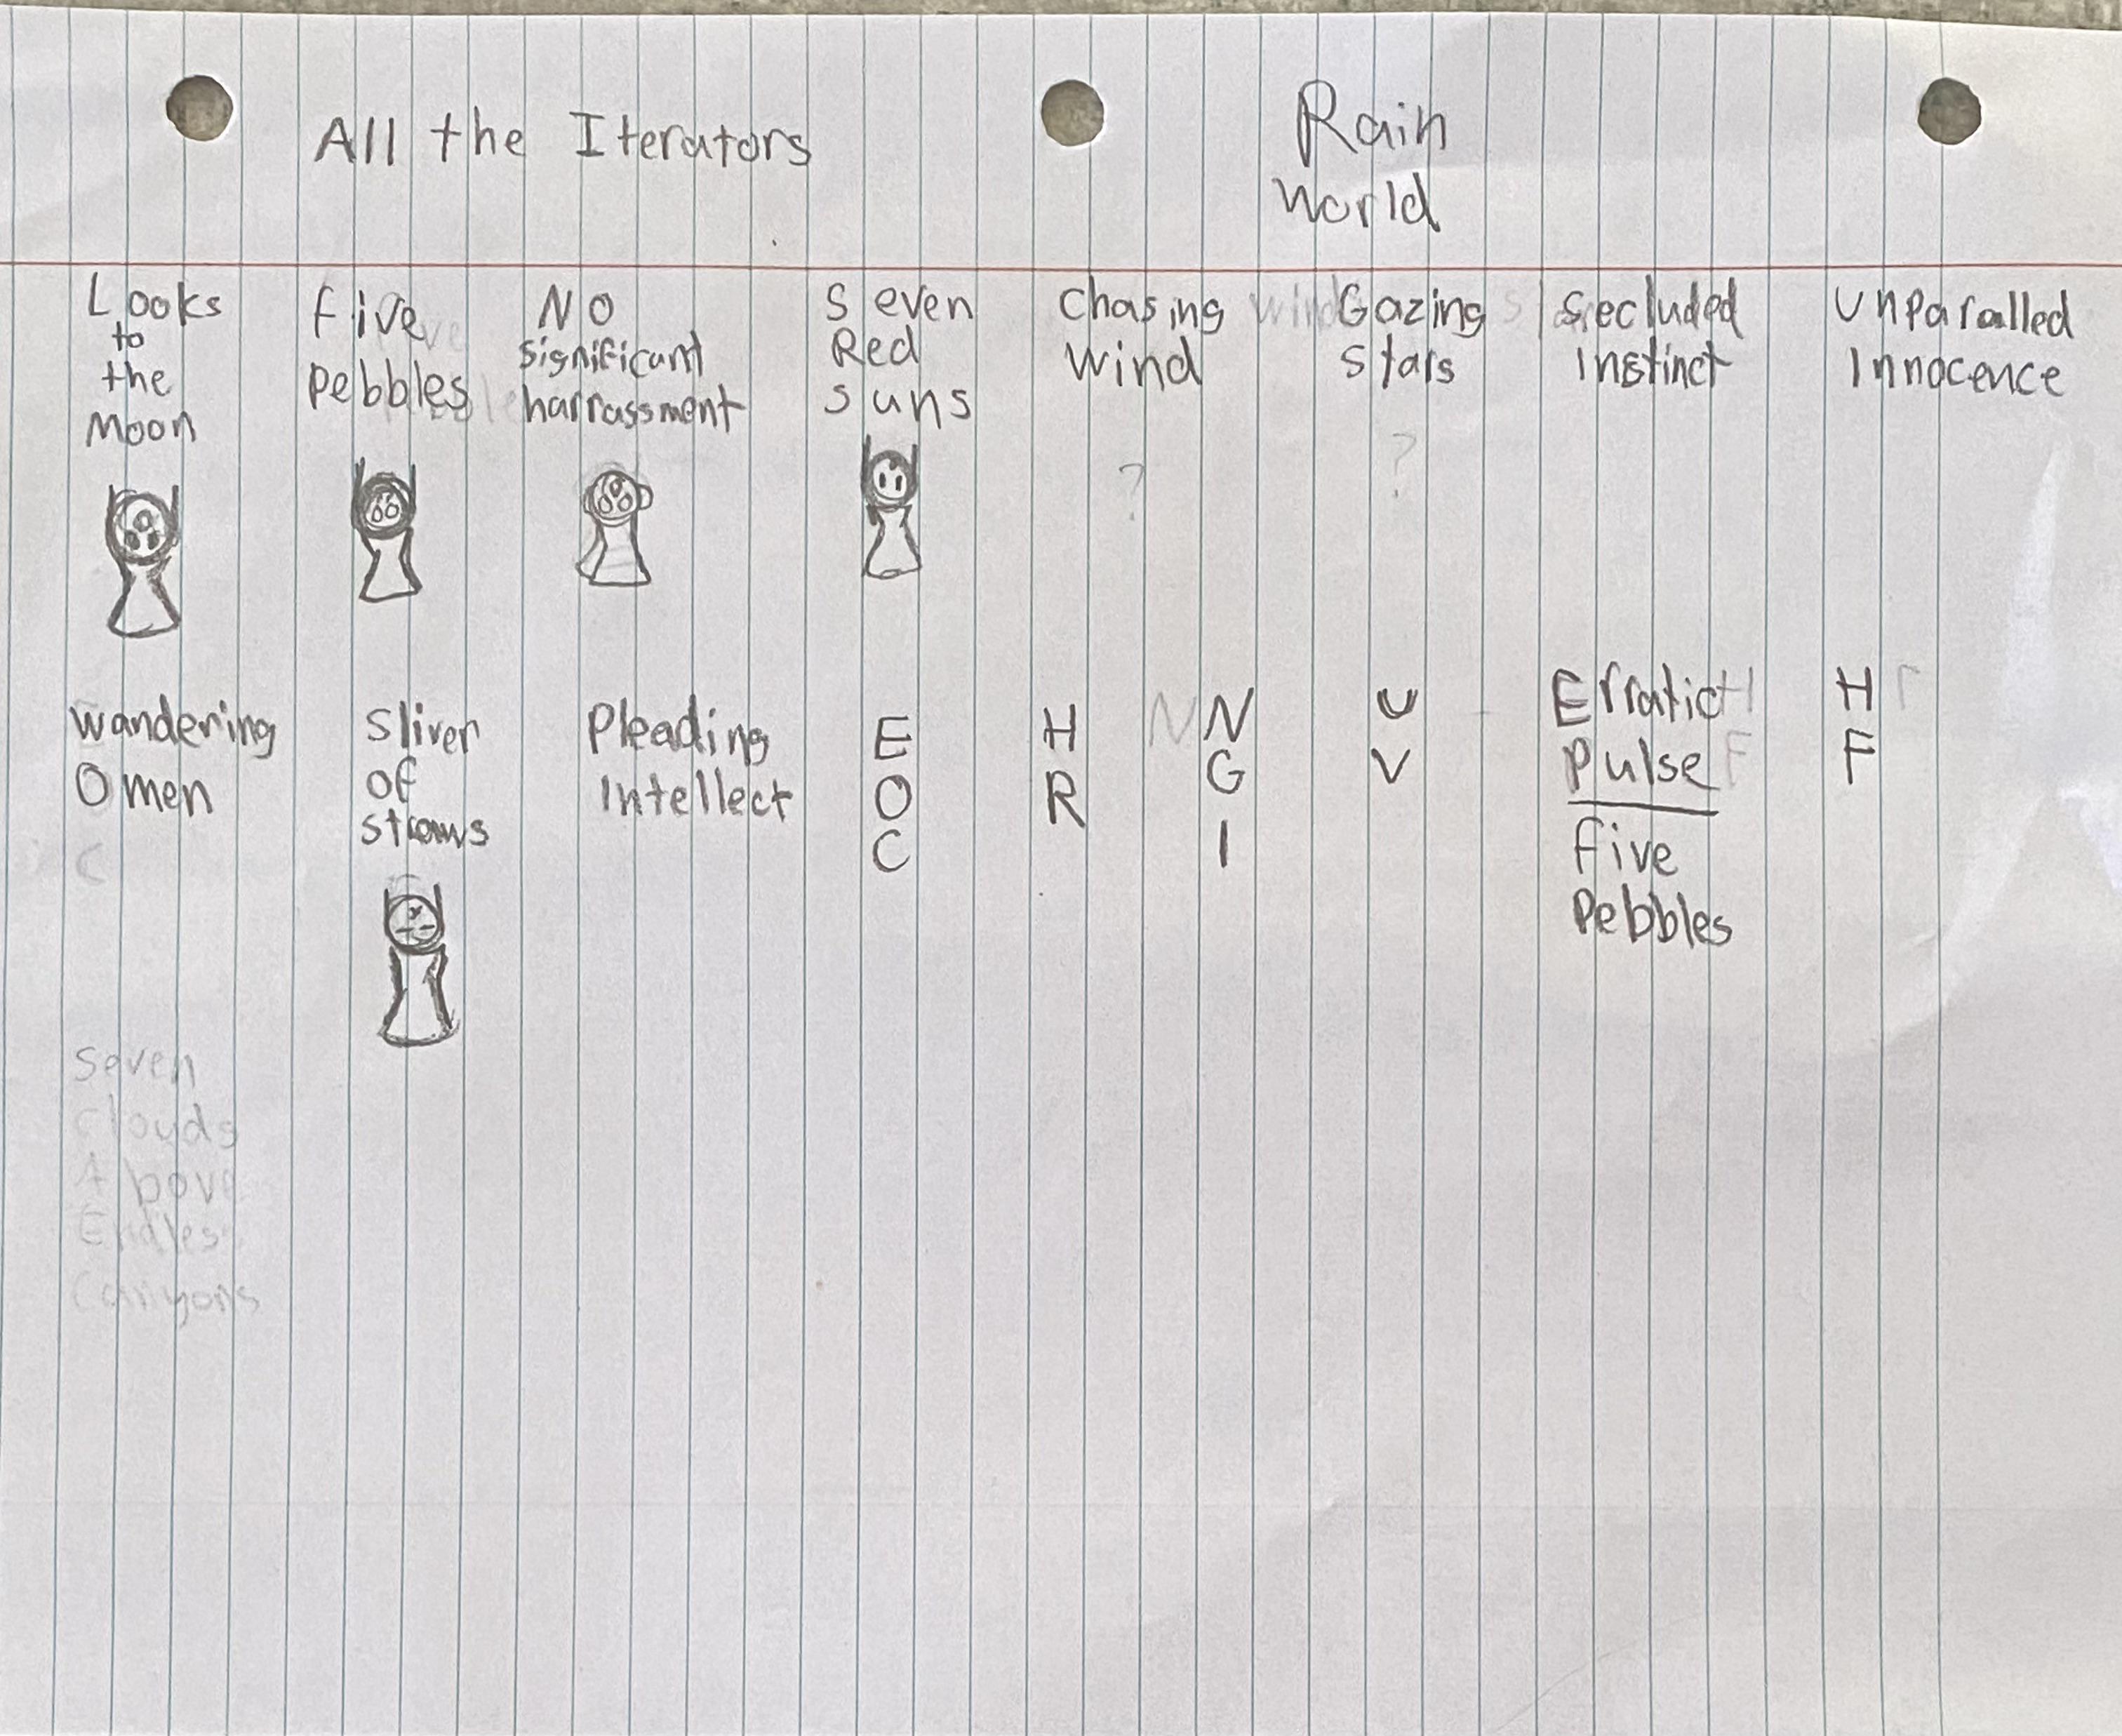 All the Iterators
Rain
World
Looks
to
the
Moon
five
pebbles
No
significant
harrassment
Seven
Red
suns
Chasing
wind
Gazing
stars
secluded
instinct
unparalled
Innocence
?
?
wandering
Omen
C
sliver
of
straws
Pleading
Intellect
E
O
C
H
R
N
N
G
I
U
V
Erratic
pulse
five
Pebbles
H
F
seven
clouds
Above
Endles
canyons